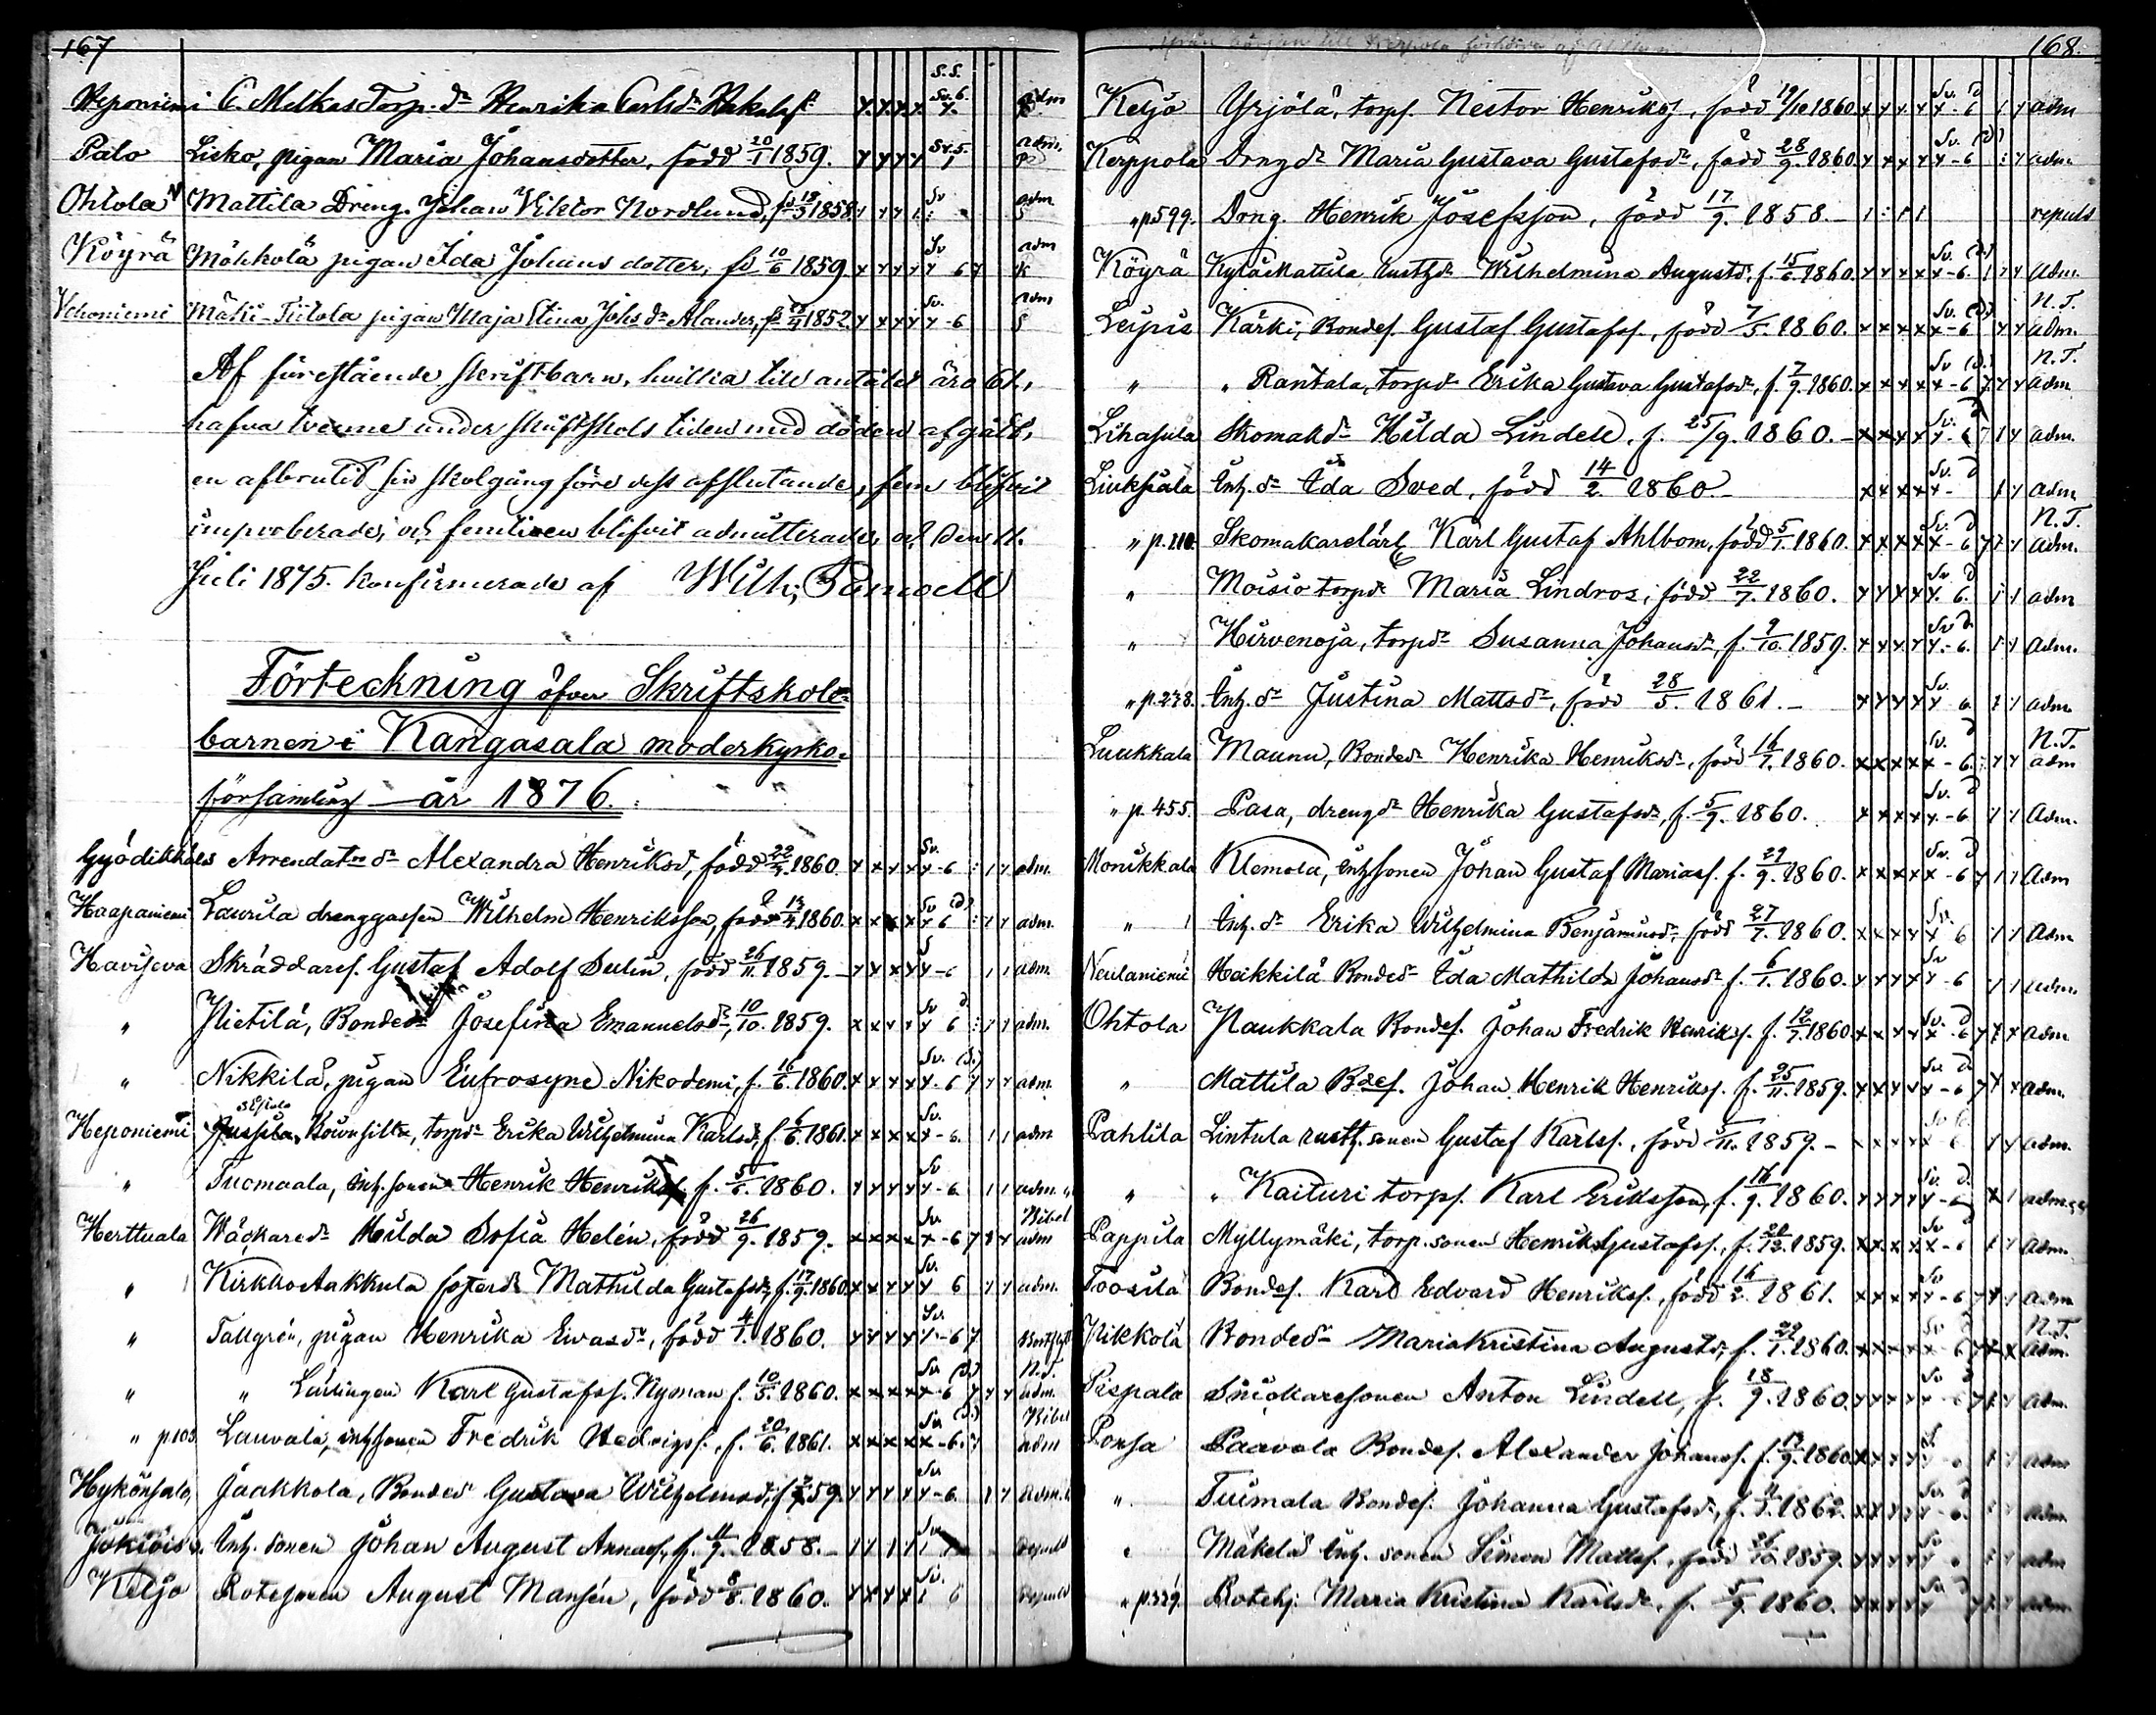 167
Heponiemi C. Melkas Torp. dr Henrika Carlsdr adm
Palo Lisko, pigan Maria Johansdotter, född 20/1 1859. adm.
Ohtola Mattila Dreng. Johan Viktor Nordlund, 1858 adm
Köyrä Mökkolä pigan Ida Johans dotter, fd 10/6 1859 adm
Vehoniemi Mäki-Tiitola pigan Maja Stina Johs dr Alander, 1852 adm
Af förestående skriftbarn, hvilka till antalet äro 61,
hafva tvenne under skriftskols tiden med döden afgått,
en afbrutit sin skolgång före dess afslutande, fem blifvit
improberade, och femtitren blifvit admitterade, och den 11.
Juli 1875. konfirmerade af Wilh.
Förteckning öfver Skriftskole-
barnen i Kangasala moderkyrko-
församling år 1876.
Arrendat dr Alexandra Henriksdr, född 22/4 1860 Sv. 6 adm.
Haapaniemi Laurila drenggossen Wilhelm Henriksson, född 13/4 1860. Sv. 6 adm.
Haviseva Skräddares. Gustaf Adolf Selin, född 26/11. 1859. 6 adm.
" Hietilä, Bondedr Josefina Emanuelsdr, 10/10. 1859. Sv 6 adm.
" Nikkilä, pigan Eufrosyne Nikodemi, f. 16/6. 1860. Sv. 6 adm.
Heponiemi torpdr Erika Wilhelmina Karlsdr, f. 6/6. 1861. Sv. 6. adm
" Tuomaala, inh. sonen Henrik f. 5/6. 1860. Sv 6. adm.
Herttuala Wäckaredr Hilda Sofia Helén, född 26/9. 1859. Sv. 6 Bibel adm
" Kirkko Aakkula fosterdr Mathilda Gustafsdr, f. 17/9. 1860. Sv. 6 adm.
" Tallgrén, pigan Henrika Evasdr, född 4/1. 1860. Sv. 6
" " Lärlingen Karl Gustafss. Nyman f. 10/5. 1860. Sv 6 N.T. adm.
" p.103. Lauvala, inhsonen Fredrik Hedvigss. f. 20/6. 1861. Sv 6. Bibel adm
Hykönsalo, Jaakkola, Bondedr Gustava Wilhelmsdr, 59. Sv 6. adm.
Jokiois. Inh. sonen Johan August Annaes. f. 11/9. 1858. Sv. repuls
Keljo Rotesonen August Mansén, född 8/8. 1860. Sv. 6 repuls
168.
Keljo Yrjölä, torps. Nestor Henrikss, född 19/10 1860. Sv. 6 adm
Kerppola Drengdr Maria Gustava Gustafsdr, född 28/9. 1860. Sv. 6 adm.
" p599. Dreng. Henrik Josefsson, född 17/9. 1858. repuls
Köyrä KyläMattila rusthdr Wilhelmina Augustdr, f. 15/6. 1860. Sv. 6. adm.
Leipis Kärki, Bondes. Gustaf Gustafss., född 7/5. 1860. Sv. 6 N.T. adm.
" " Rantala, torpdr Erika Gustava Gustafsdr, f. 7/9. 1860. Sv 6 N.T. adm.
Lihasula Skomakdr Hilda Lindell, f. 25/9. 1860. Sv. 6 adm.
Liuksiala Inh. dr Ida Sved, född 14/2. 1860. Sv. adm
" p.210. Skomakarelärl. Karl Gustaf Ahlbom, född 5/1. 1860. Sv. 6 N.T. adm.
" Moisio torpdr Maria Lindros, född 22/7. 1860. Sv 6. adm
" Hirvenoja, torpdr Susanna Johansdr, f. 9/10. 1859. Sv 6. adm.
" p.238. Inh. dr Justina Mattsdr, född 28/5. 1861. Sv. 6. adm.
Luukkala Maunu, Bondedr Henrika Henriksdr, född 16/1. 1860. Sv. 6 N.T. adm
" p. 455. Pasa, drengdr Henrika Gustafsdr, f. 5/9. 1860. Sv. 6 adm.
Monikkala Klemola, inhsonen Johan Gustaf Mariass. f. 29/9. 1860. Sv. 6 adm
" Inh. dr Erika Wilhelmina Benjaminsdr, född 27/7. 1860. Sv. 6 adm
Neulaniemi Heikkilä Bondedr Ida Mathilda Johansdr f. 6/1. 1860. Sv 6 adm.
Ohtola Naukkala Bondes. Johan Fredrik Henrikss. f. 12/7. 1860. Sv. 6 adm.
" Mattila Bdes. Johan Henrik Henrikss. f. 25/11. 1859. Sv 6 adm.
Pahlila Lintula rusth. sonen Gustaf Karlss., född 5/11. 1859. 6 adm.
" " Kaituri torps. Karl Eriksson, f. 16/9. 1860. Sv. 6 adm.
Pappila Myllymäki, torp. sonen Henrik Gustafss., f. 20/12. 1859. Sv 6 adm.
Toosila Bondes. Karl Edvard Henrikss., född 16/2. 1861. Sv 6 adm
Bondedr Maria Kristina Augustdr, f. 22/1. 1860. Sv 6 N.T. adm.
Pispala Snickaresonen Anton Lindell, f. 18/9. 1860. Sv 6 adm.
Ponsa Paavola Bondes. Alexander Johanss. f. 13/9. 1860. adm
". Tuimala Bondes. Johanna Gustafsdr, 1862. Sv 6. adm
" Mäkelä Inh. sonen Simon Mattss., född 26/10. 1859. Sv adm
" p.339. Rotehj. Maria Kristina Karlsdr. f. 5/9. 1860. Sv adm.